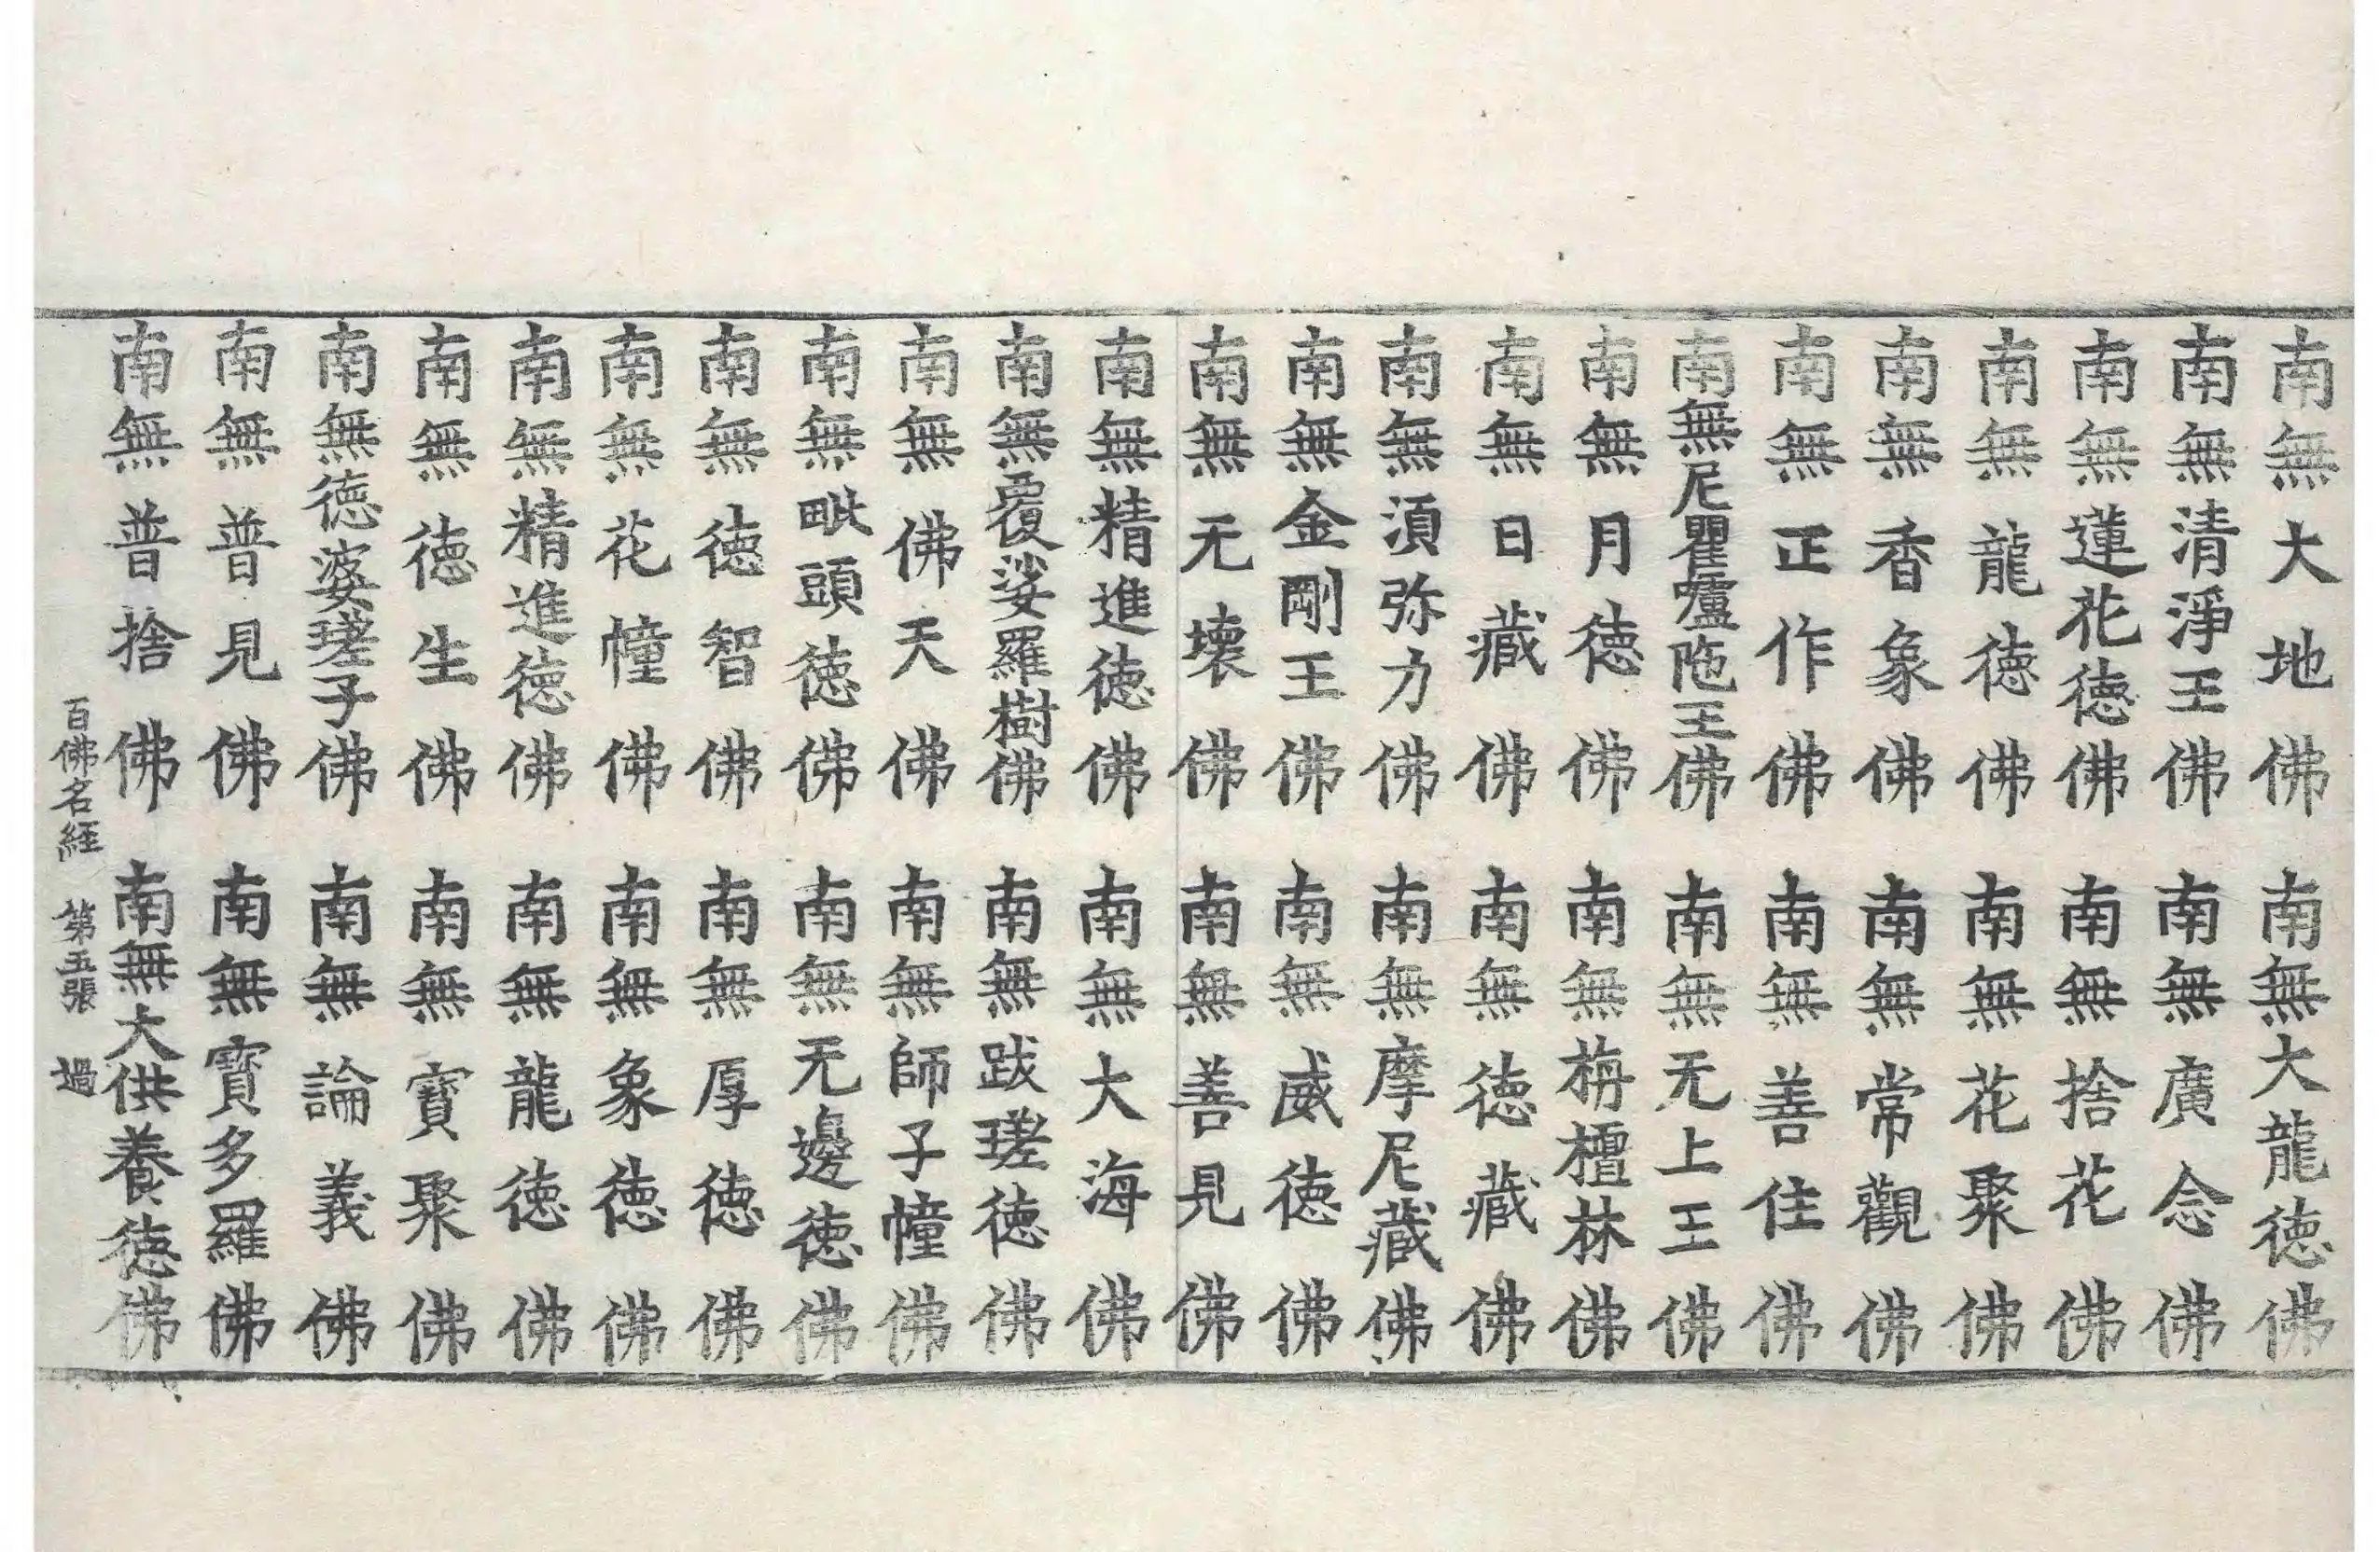 南無大地佛　南無大龍徳佛
南無清淨王佛　南無廣念佛
南無蓮花徳佛　南無捨花佛
南無龍徳佛　南無花聚佛
南無香象佛　南無常觀佛
南無正作佛　南無善住佛
南無尼瞿嚧陁王佛　南無无上王佛
南無月徳佛　南無栴檀林佛
南無日藏佛　南無徳藏佛
南無湏弥力佛　南無摩尼藏佛
南無金剛王佛　南無威徳佛
南無无壊佛　南無善見佛
南無精進徳佛　南無大海佛
南無覆娑羅樹佛　南無跋瑳徳佛
南無佛天佛　南無師子幢佛
南無毗頭徳佛　南無无邊徳佛
南無徳智佛　南無厚徳佛
南無花幢佛　南無象徳佛
南無精進徳佛　南無龍徳佛
南無徳生佛　南無寶聚佛
南無徳婆瑳子佛　南無論義佛
南無普見佛　南無寶多羅佛
南無普捨佛　南無大供養徳佛
百佛名経　第五張　過